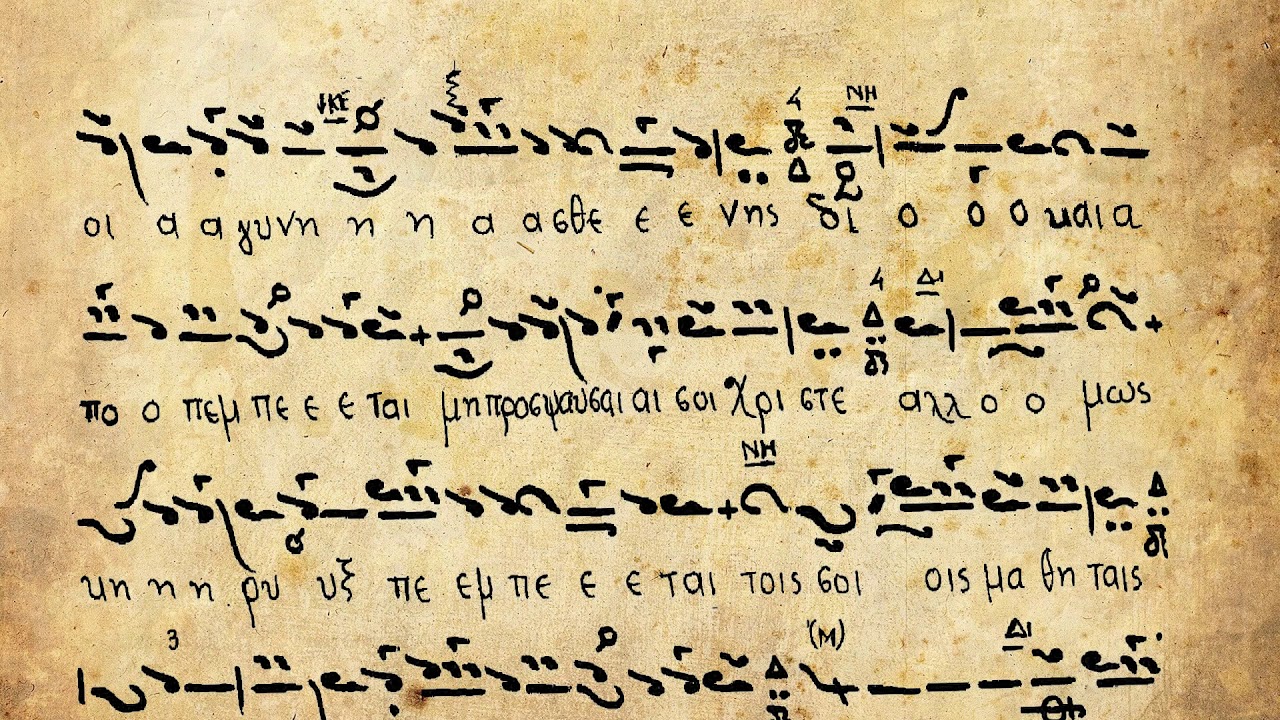 οι α α γυνη η η α ασθε ε ε νης δι ο ο ο και α
πο ο πεμ πε ε ε ται μη προσψαυσαι αι σοι Χρι στε αλλ ο ο μως
κη η η ρυ υξ πε εμ πε ε ε ται τοις σοι οις μα θη ταις